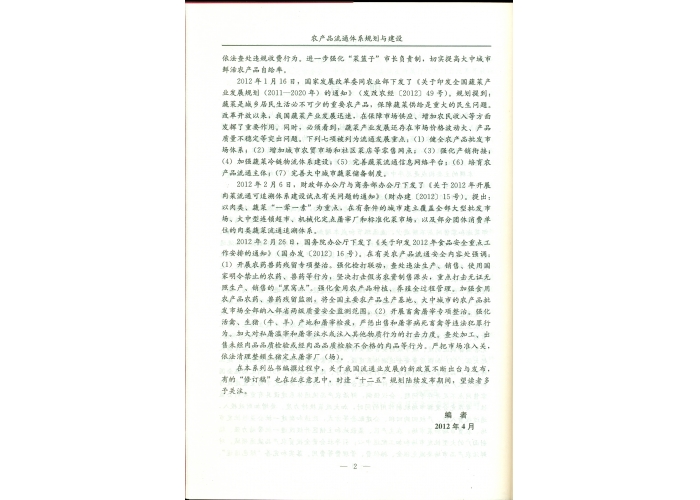 农产品流通体系规划与建设
依法查处违规收费行为。进一步强化“菜篮子”市长负责制，切实提高大中城市
鲜活农产品自给率。
2012年1月16日，国家发展改革委同农业部下发了《关于印发全国蔬菜产
业发展规划（2011—2020年）的通知》（发改农经［2012］49号）。规划提到：
蔬菜是城乡居民生活必不可少的重要农产品，保障蔬菜供给是重大的民生问题。
改革开放以来，我国蔬菜产业发展迅速，在保障市场供应、增加农民收入等方面
发挥了重要作用。同时，必须看到，蔬菜产业发展还存在市场价格波动大、产品
质量不稳定等突出问题。下列七项被列为流通发展重点：（1）健全农产品批发市
场体系；（2）增加城市农贸市场和社区菜店等零售网点；（3）强化产销衔接；
（4）加强蔬菜冷链物流体系建设；（5）完善蔬菜流通信息网络平台；（6）培育农
产品流通主体；（7）完善大中城市蔬菜储备制度。
2012年2月6日，财政部办公厅与商务部办公厅下发了《关于2012年开展
肉菜流通可追溯体系建设试点有关问题的通知》（财办建［2012］15号）。提出：
以肉类、蔬菜“一荤一素”为重点，在有条件的城市建立覆盖全部大型批发市
场、大中型连锁超市、机械化定点屠宰厂和标准化菜市场，以及部分团体消费单
位的肉类蔬菜流通追溯体系。
2012年2月26日，国务院办公厅下发了《关于印发2012年食品安全重点工
作安排的通知》（国办发［2012］16号）。在有关农产品流通安全内容处强调：
（1）开展农药兽药残留专项整治。强化检打联动，查处违法生产、销售、使用国
家明令禁止的农药、兽药等行为，坚决打击假劣农资制售源头，重点打击无证无
照生产、销售的“黑窝点”。强化食用农产品种植、养殖全过程管理。加强食用
农产品农药、兽药残留监测，将全国主要农产品生产基地、大中城市的农产品批
发市场全部纳入部省两级质量安全监测范围。（2）开展畜禽屠宰专项整治。强化
活禽、生猪（牛、羊）产地和屠宰检疫，严惩出售和屠宰病死畜禽等违法犯罪行
为。加大对私屠滥宰和屠宰注水或注入其他物质行为的打击力度。查处加工、出
售未经肉品品质检验或经肉品品质检验不合格的肉品等行为。严把市场准入关，
依法清理整顿生猪定点屠宰厂（场）。
在本系列丛书编撰过程中，关于我国流通业发展的新政策不断出台与发布，
有的“修订稿”也在征求意见中，时逢“十二五”规划陆续发布期间，望读者多
予关注。
编 者
2012年4月
— 2 —